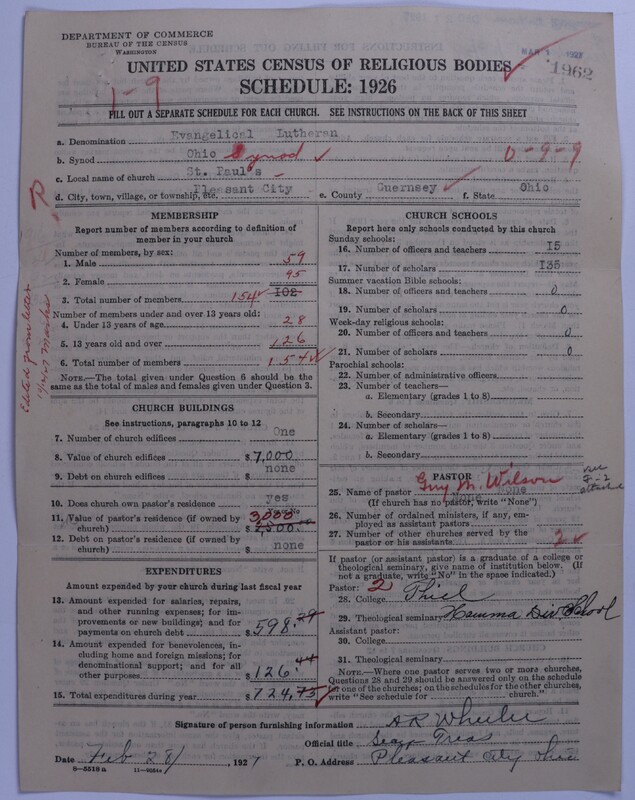 DEPARTMENT OF COMMERCE
BUREAU OF THE CENSUS
WASHINGTON
MAR 3 1927
UNITED STATES CENSUS OF RELIGIOUS BODIES
1962
SCHEDULE: 1926
1-9
FILL OUT A SEPARATE SCHEDULE FOR EACH CHURCH. SEE INSTRUCTIONS ON THE BACK OF THIS SHEET
a. Denomination Evangelical Lutheran
b. Synod Ohio Synod 0-9-9
c. Local name of church St. Paul's
d. City, town, village, or township, etc. Pleasant City e. County Guernsey f. State Ohio
R
Edited from letter
MEMBERSHIP
Report number of members according to definition of
member in your church
Number of members, by sex:
1. Male 59
2. Female 95
3. Total number of members 154 102
Number of members under and over 13 years old:
4. Under 13 years of age 28
5. 13 years old and over 126
6. Total number of members 154
NOTE.—The total given under Question 6 should be
the same as the total of males and females given under Question 3.
CHURCH BUILDINGS
See instructions, paragraphs 10 to 12
7. Number of church edifices One
8. Value of church edifices $7,000
9. Debt on church edifices $ none
10. Does church own pastor's residence yes
11. Value of pastor's residence (if owned by
church) 3000 $
12. Debt on pastor's residence (if owned by
church) $ none
EXPENDITURES
Amount expended by your church during last fiscal year
13. Amount expended for salaries, repairs,
and other running expenses; for im-
provements or new buildings; and for
payments on church debt $598.29
14. Amount expended for benevolences, in-
cluding home and foreign missions; for
denominational support; and for all
other purposes $126.44
15. Total expenditures during year $724.75
CHURCH SCHOOLS
Report here only schools conducted by this church
Sunday schools:
16. Number of officers and teachers 15
17. Number of scholars 135
Summer vacation Bible schools:
18. Number of officers and teachers 0
19. Number of scholars 0
Week-day religious schools:
20. Number of officers and teachers 0
21. Number of scholars 0
Parochial schools:
22. Number of administrative officers
23. Number of teachers—
a. Elementary (grades 1 to 8)
b. Secondary
24. Number of scholars—
a. Elementary (grades 1 to 8)
b. Secondary
PASTOR
25. Name of pastor Guy M. Wilson
(If church has no pastor, write "None")
26. Number of ordained ministers, if any, em-
ployed as assistant pastors
27. Number of other churches served by the
pastor or his assistants 2
If pastor (or assistant pastor) is a graduate of a college or
theological seminary, give name of institution below. (If
not a graduate, write "No" in the space indicated.)
Pastor: 2
28. College Thiel
29. Theological seminary Hamma Div School
Assistant pastor:
30. College
31. Theological seminary
NOTE.—Where one pastor serves two or more churches,
Questions 28 and 29 should be answered only on the schedule
for one of the churches; on the schedules for the other churches,
write "See schedule for church."
Signature of person furnishing information A R Wheeler
Official title Secy Treas
Date Feb 28/, 1927 P. O. Address Pleasant City Ohio
8-5518a